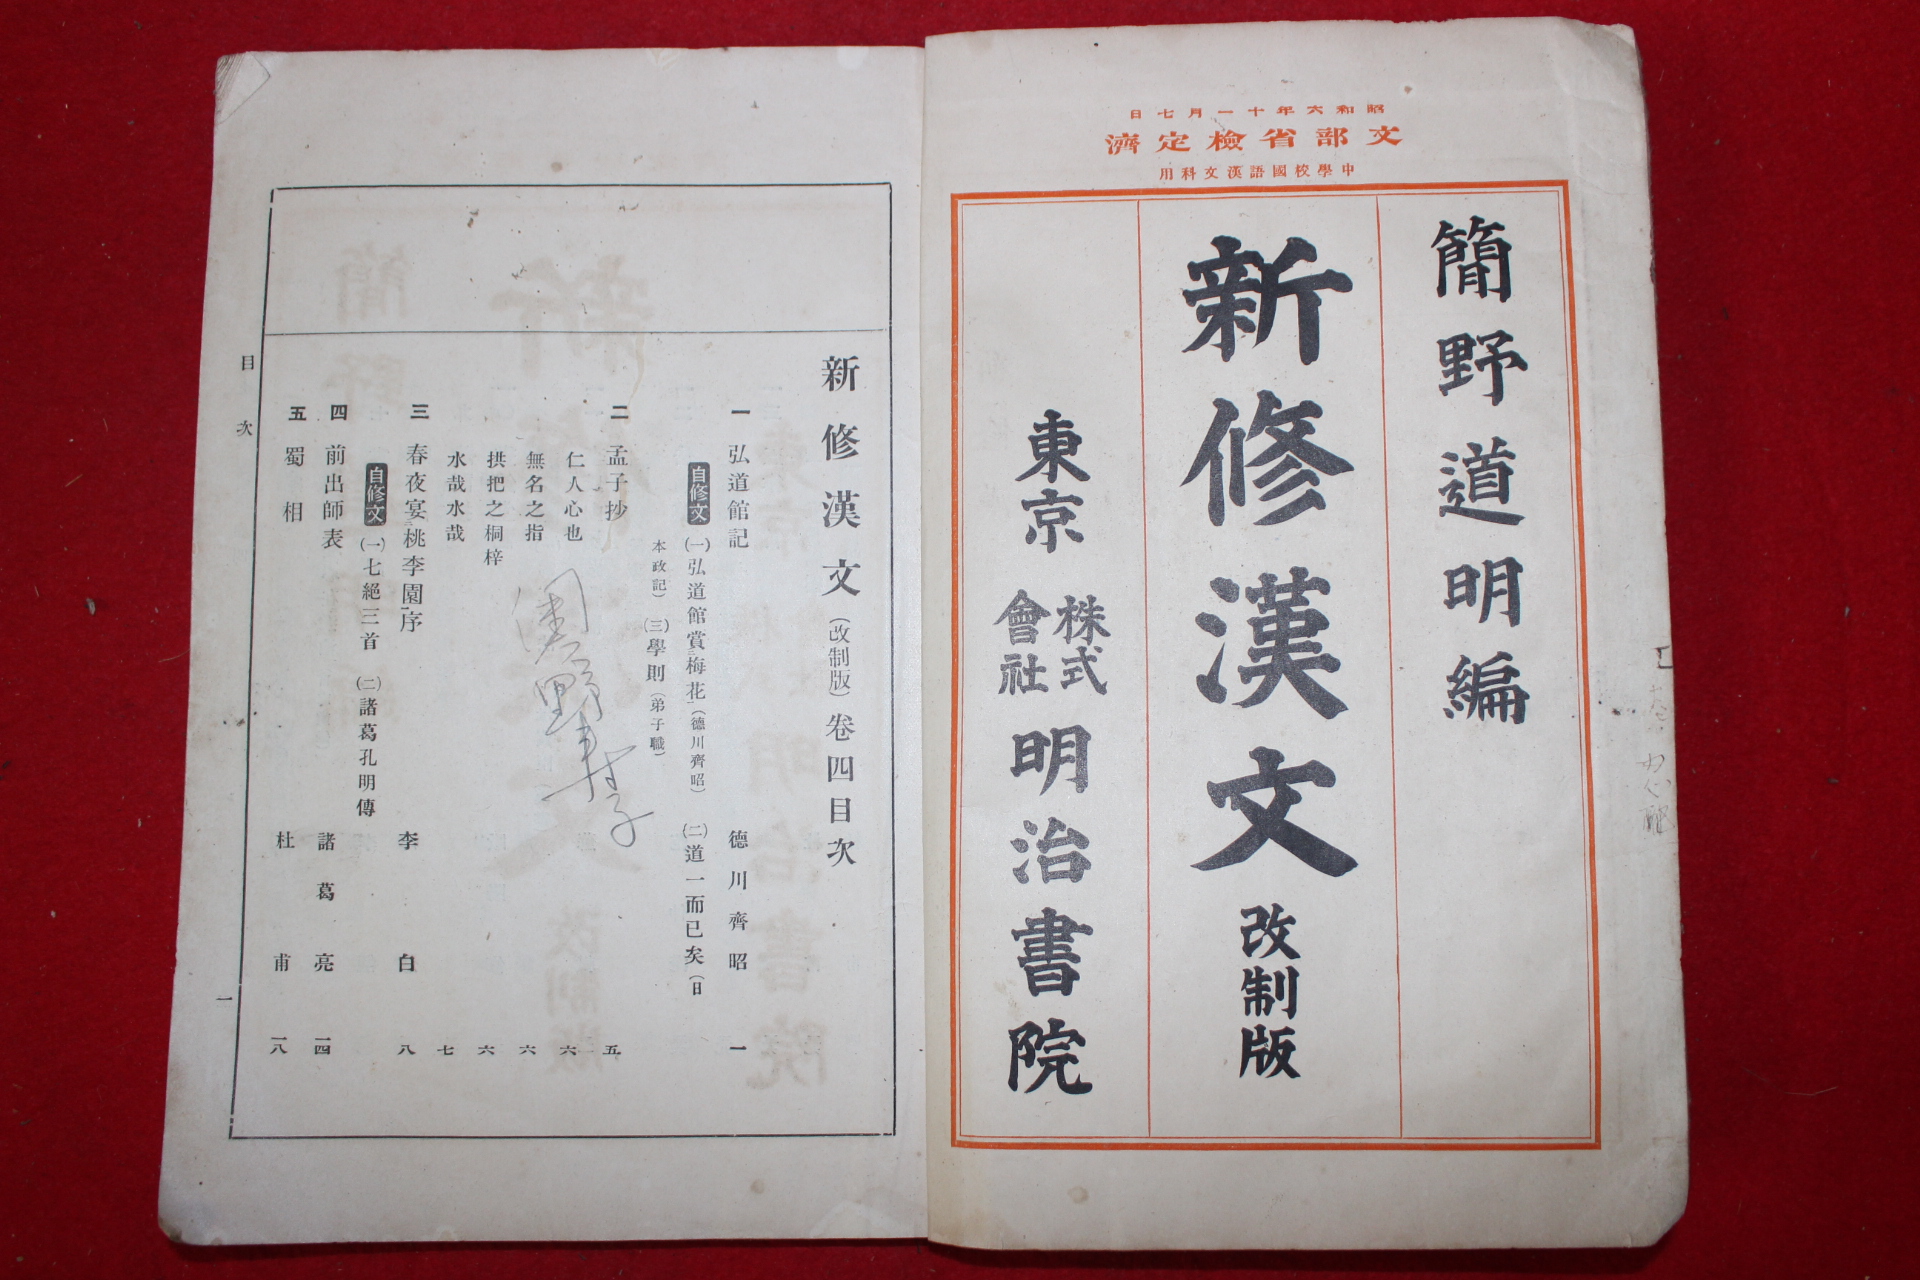 昭和六年十一月七日
文部省檢定濟
中學校國語漢文科用
簡野道明編
新修漢文 改制版
東京 株式會社 明治書院
新修漢文（改制版）卷四目次
一 弘道館記 德川齊昭 一
自修文 (一)弘道館賞二梅花一（德川齊昭） (二)道一而已矣（日
本政記） (三)學則（弟子職）
二 孟子抄 五
仁人心也 六
無名之指 六
拱把之桐梓 六
水哉水哉 七
三 春夜宴二桃李園一序 李白 八
自修文 (一)七絕三首 (二)諸葛孔明傳
四 前出師表 諸葛亮 一四
五 蜀相 杜甫 一八
目次
一